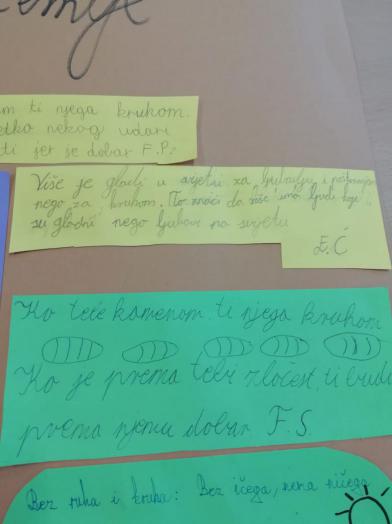 ti njega kruhom.
nekog udari
ti jer je dobar F.P.
Više je gladi u svijetu za ljubavlju i poštovanjem
nego za kruhom. To znači da više ima ljudi koji
su gladni nego ljubavi na svijetu
E.Ć
Ko tebe kamenom, ti njega kruhom
Ko je prema tebi zločest, ti budi
prema njemu dobar F.S.
Bez ruha i kruha: Bez ičega, nema ničega